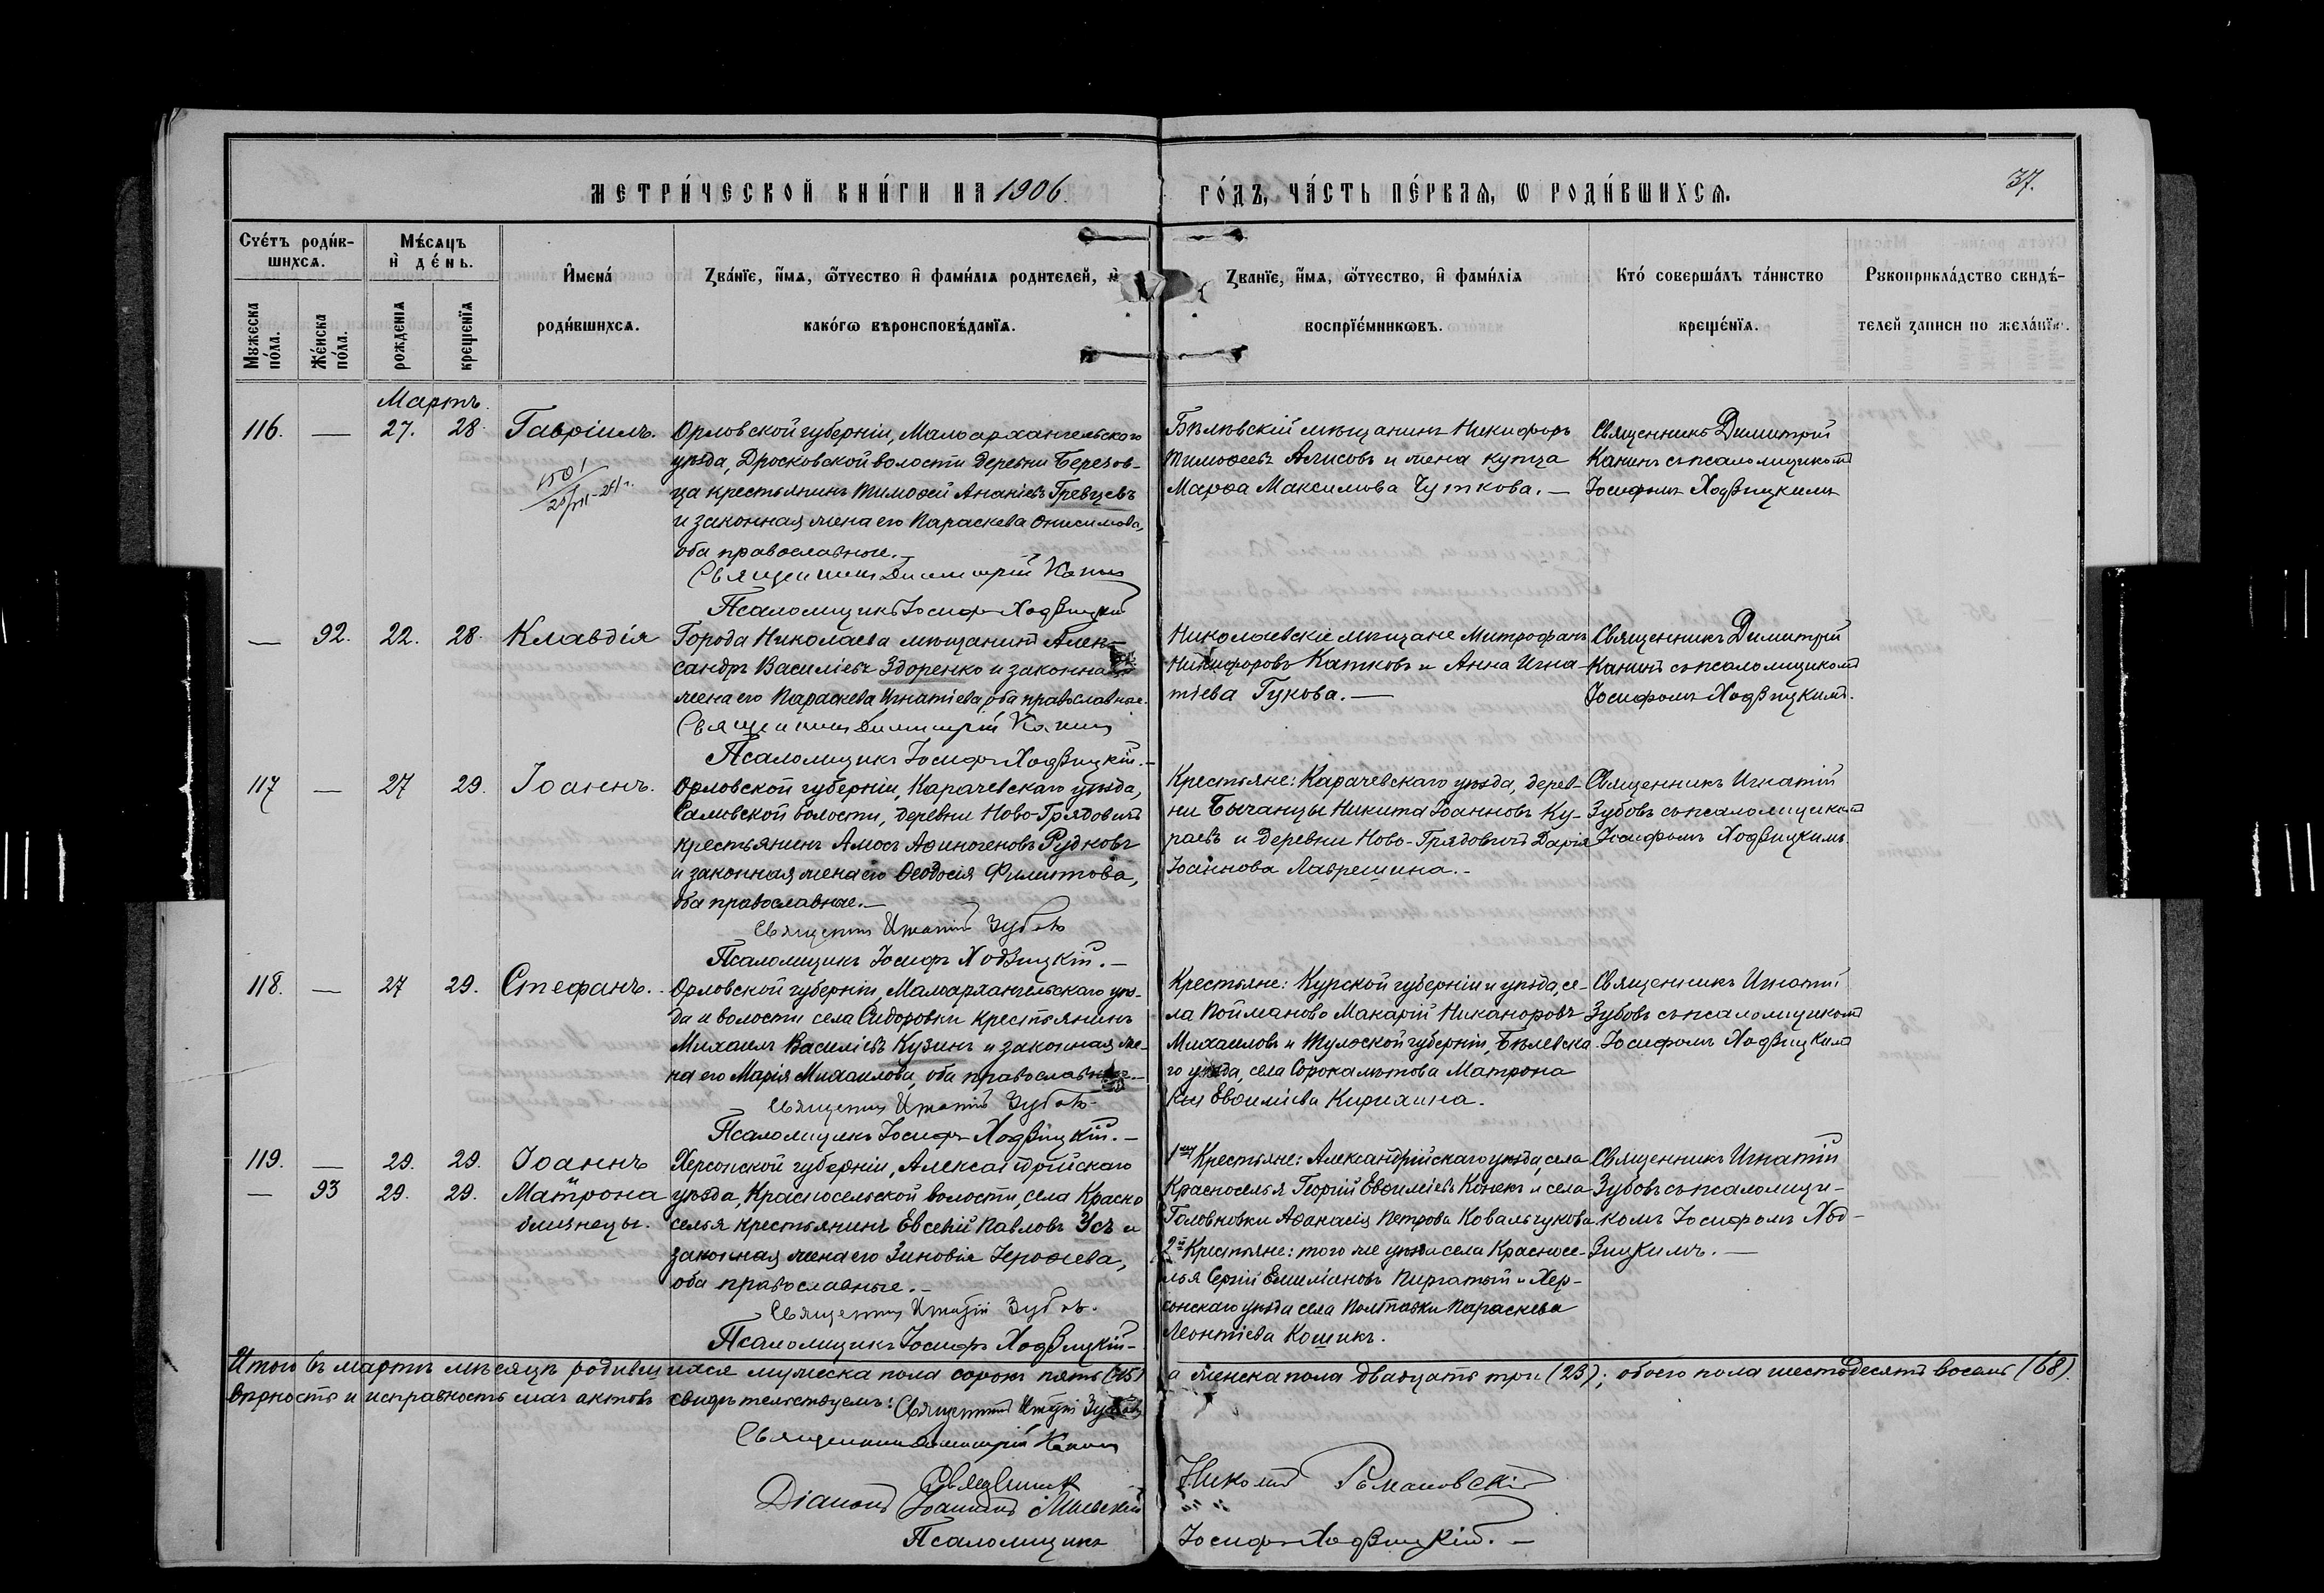 МЕТРИ́ЧЕСКОЙ КНИ́ГИ НА 1906 ГО́ДЪ, ЧА́СТЬ ПЕ́РВАѦ, Ѡ РОДИ́ВШИХСѦ.
37.
Сче́тъ роди́вшихсѧ.
Мѣ́сѧцъ и҆ де́нь.
Мꙋжеска по́ла.
Же́нска по́ла.
рожденїѧ
крещенїѧ
И҆мена́ роди́вшихсѧ.
Ꙁва́нїе, и҆́мѧ, ѻ҆́тчество и҆ фами́лїѧ родителей, и҆
како́гѡ вѣроисповѣ́данїѧ.
Ꙁванїе, и҆́мѧ, ѻ҆́тчество, и҆ фами́лїѧ
воспрїе́мникѡвъ.
Кто́ соверша́лъ та́инство
креще́нїѧ.
Рꙋкоприкла́дство свидѣ́-
телей ꙁаписи по жела́нїю.
Мартъ.
116. — 27. 28. Гавріилъ.
Орловской губерніи, Малоархангельского
уѣзда, Дросковской волости деревни Березов-
ца крестьянинъ Тимоѳей Ананіевъ Гревцевъ
и законная жена его Параскева Онисимова,
оба православные.—
Священникъ Димитрій Канинъ
Псаломщикъ Іосифъ Ходзицкій
Бѣлевскій мѣщанинъ Никифоръ
Тимоѳеевъ Алисовъ и жена купца
Марѳа Максимова Чуткова.—
Священникъ Димитрій
Канинъ съ псаломщикомъ
Іосифомъ Ходзицкимъ
— 92. 22. 28. Клавдія
Города Николаева мѣщанинъ Алек-
сандръ Василіевъ Здоренко и законная
жена его Параскева Игнатіева, оба православные.
Священникъ Димитрій Канинъ
Псаломщикъ Іосифъ Ходзицкій.—
Николаевскіе мѣщане Митрофанъ
Никифоровъ Катковъ и Анна Игна-
тіева Гукова.—
Священникъ Димитрій
Канинъ съ псаломщикомъ
Іосифомъ Ходзицкимъ.
117 — 27 29. Іоаннъ.
Орловской губерніи, Карачевскаго уѣзда,
Самовской волости, деревни Ново-Грядовичъ
крестьянинъ Амосъ Аѳиногеновъ Рудковъ
и законная жена его Ѳеодосія Филиппова,
оба православные.—
Священникъ Игнатій Зубовъ
Псаломщикъ Іосифъ Ходзицкій.—
Крестьяне: Карачевскаго уѣзда, дерев-
ни Бычанцы Никита Іоанновъ Ку-
раевъ и деревни Ново-Грядовичъ Дарія
Іоаннова Лаврешина.—
Священникъ Игнатій
Зубовъ съ псаломщикомъ
Іосифомъ Ходзицкимъ.
118. — 27 29. Стефанъ.
Орловской губерніи, Малоархангельскаго уѣз-
да и волости села Сидоровки крестьянинъ
Михаилъ Василіевъ Кузинъ и законная же-
на его Марія Михаилова, оба православные.—
Священникъ Игнатій Зубовъ
Псаломщикъ Іосифъ Ходзицкій.—
Крестьяне: Курской губерніи и уѣзда, се-
ла Пойманово Макарій Никаноровъ
Михаиловъ и Тульской губерніи, Бѣлевска
го уѣзда, села Сорокалѣтова Матрона
Евѳиміева Кирихина.
Священникъ Игнатій
Зубовъ съ псаломщикомъ
Іосифомъ Ходзицкимъ
119. — 29. 29. Іоаннъ
— 93 29. 29. Матрона
близнецы.
Херсонской губерніи, Александрійскаго
уѣзда, Красносельской волости, села Красно
селья крестьянинъ Евсевій Павловъ Усъ и
законная жена его Зиновія Іероѳеева,
оба православные.—
Священникъ Игнатій Зубовъ.
Псаломщикъ Іосифъ Ходзицкій—
1го Крестьяне: Александрійскаго уѣзда, села
Красноселья Георгій Евѳиміевъ Конекъ и села
Головковки Аѳанасія Петрова Ковальчукова
2й Крестьяне: того же уѣзда села Красносе-
лья Сергій Емиліановъ Пиргатый и Хер-
сонскаго уѣзда села Полтавки Параскева
Леонтіева Кошикъ.
Священникъ Игнатій
Зубовъ съ псаломщи-
комъ Іосифомъ Ход-
зицкимъ.—
Итого въ мартѣ мѣсяцѣ родившихся мужеска пола сорокъ пять (45) а женска пола двадцать три (23); обоего пола шестьдесятъ восемь (68).
Вѣрность и исправность сихъ актовъ свидѣтельствуемъ: Священникъ Игнатій Зубовъ
Священникъ Димитрій Канинъ
Священникъ Николай Романовскій
Діаконъ Іоаннъ
Псаломщикъ Іосифъ Ходзицкій.—